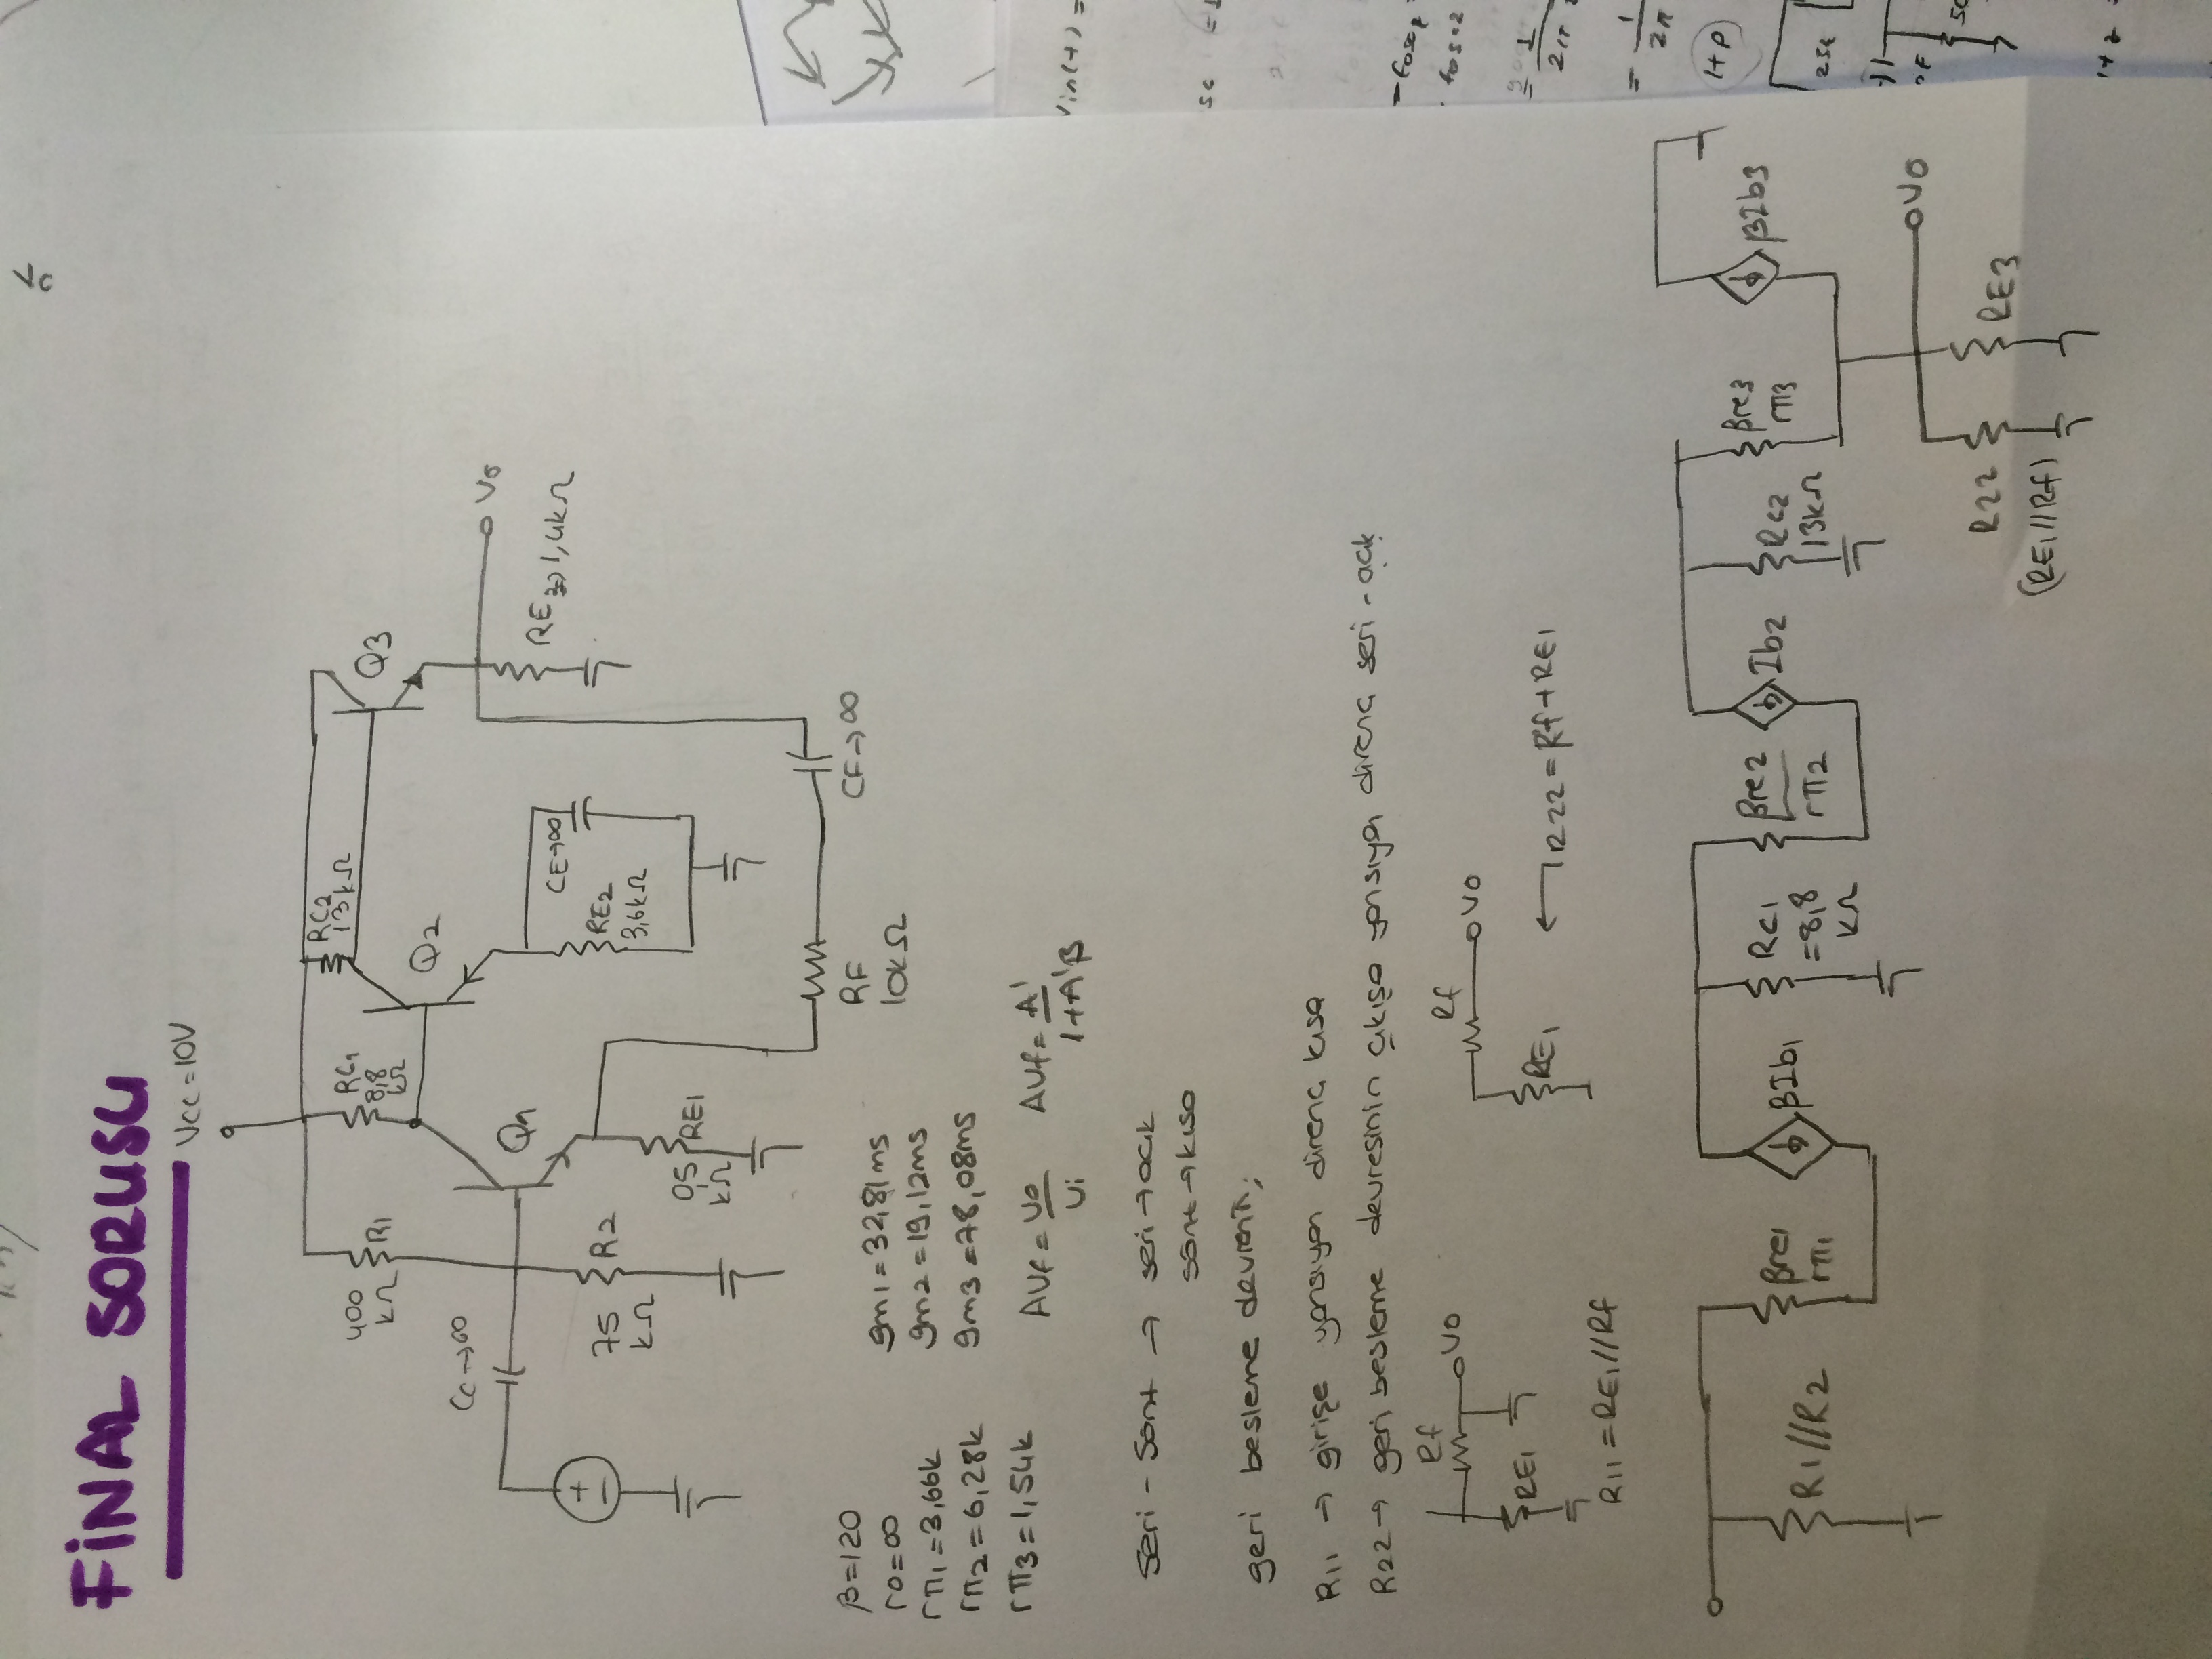 FİNAL SORUSU
VCC = 10V
400 kΩ R1
RC1 8,8 kΩ
RC2 13kΩ
Q3
Q2
Cc→∞
Q1
Vo
CE→∞
RE3→1,4kΩ
+
−
75 kΩ R2
RE2 3,6kΩ
0,5 kΩ RE1
RF 10kΩ
CF→∞
β=120
ro=∞
rπ1=3,66k
rπ2=6,28k
rπ3=1,54k
gm1=32,81ms
gm2=19,12ms
gm3=78,08ms
AVf = Vo/Vi AVf = A'/1+A'β
Seri - Şönt → seri→açık
şönt→kısa
geri besleme devrenin;
R11 → girişe yansıyan direnç kısa
R22→ geri besleme devresinin çıkışa yansıyan direnç seri-açık
Rf Vo
RE1
R11=RE1//Rf
Rf Vo
RE1
R22=Rf+RE1
R1//R2
βre1 rπ1
βIb1
RC1 =8,8 kΩ
βre2 rπ2
Ib2
RC2 13kΩ
βre3 rπ3
βIb3
Vo
R22 (RE1//Rf)
RE3
Vin(t) =
sc =
= 1/2π
= 1/2π
1+P